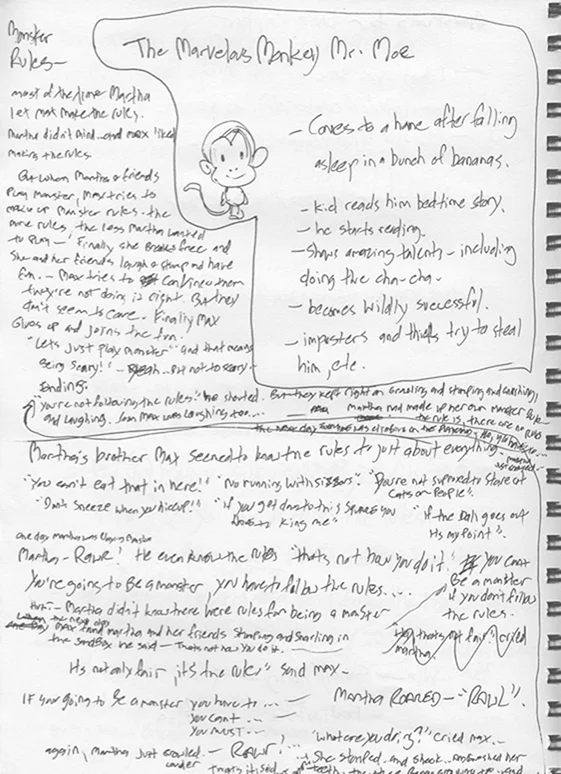 Monster
Rules—
most of the time Martha
let max make the rules.
Martha didn't mind and max liked
making the rules
But when Martha & friends
play monster, Max tries to
make up Monster rules. the
more rules, the less Martha wanted
to play — Finally she breaks free and
she and her friends laugh & stomp and have
fun. — Max tries to convince them
they're not doing is right. But they
don't seem to care. Finally Max
Gives up and joins the fun.
"Lets just play monster" and that means
Being scary!" — yeah.. But not to scary—
Ending.
The Marvelous Monkey Mr. Moe
— Comes to a home after falling
asleep in a bunch of bananas.
— kid reads him bedtime story.
— he starts reading.
— Shows amazing talents — including
doing the cha-cha—
— becomes wildly successful.
— imposters and thiefs try to steal
him, etc.
"You're not following the rules" he shouted. But they kept right on Growling and stomping and
and laughing. Soon Max was laughing too....
Martha had made up her own monster rule—
the rule is, there are no rules
the next day everyone was
Martha's brother Max seemed to know the rules to just about everything.
"You can't eat that in here!" "No running with scissors". "You're not supposed to stare at
Cats or People".
"Don't sneeze when you hiccup!" "if you get one to this square you
have to King me"
"If the ball goes out
Its my point".
one day martha was playing Monster
Martha — Rawr! He even knew the rules "thats not how you do it." If you can't
Be a monster
if you don't follow
the rules.
You're going to Be a monster, you have to follow the rules....
— Martha didn't know there were rules for being a monster
the next day
Max found martha and her friends Stomping and snarling in
the sandbox he said — Thats not how you do it. —
thats not fair! cried
martha.
Its not only fair, it's the rules" said max—
IF your going to Be a monster you have to ... —
you can't ... —
You must ... —
Martha ROARED — "RAWL".
"what are you doing?" cried max.—
again, martha just growled. — Rawr!
louder
She stomped and shook and gnashed her